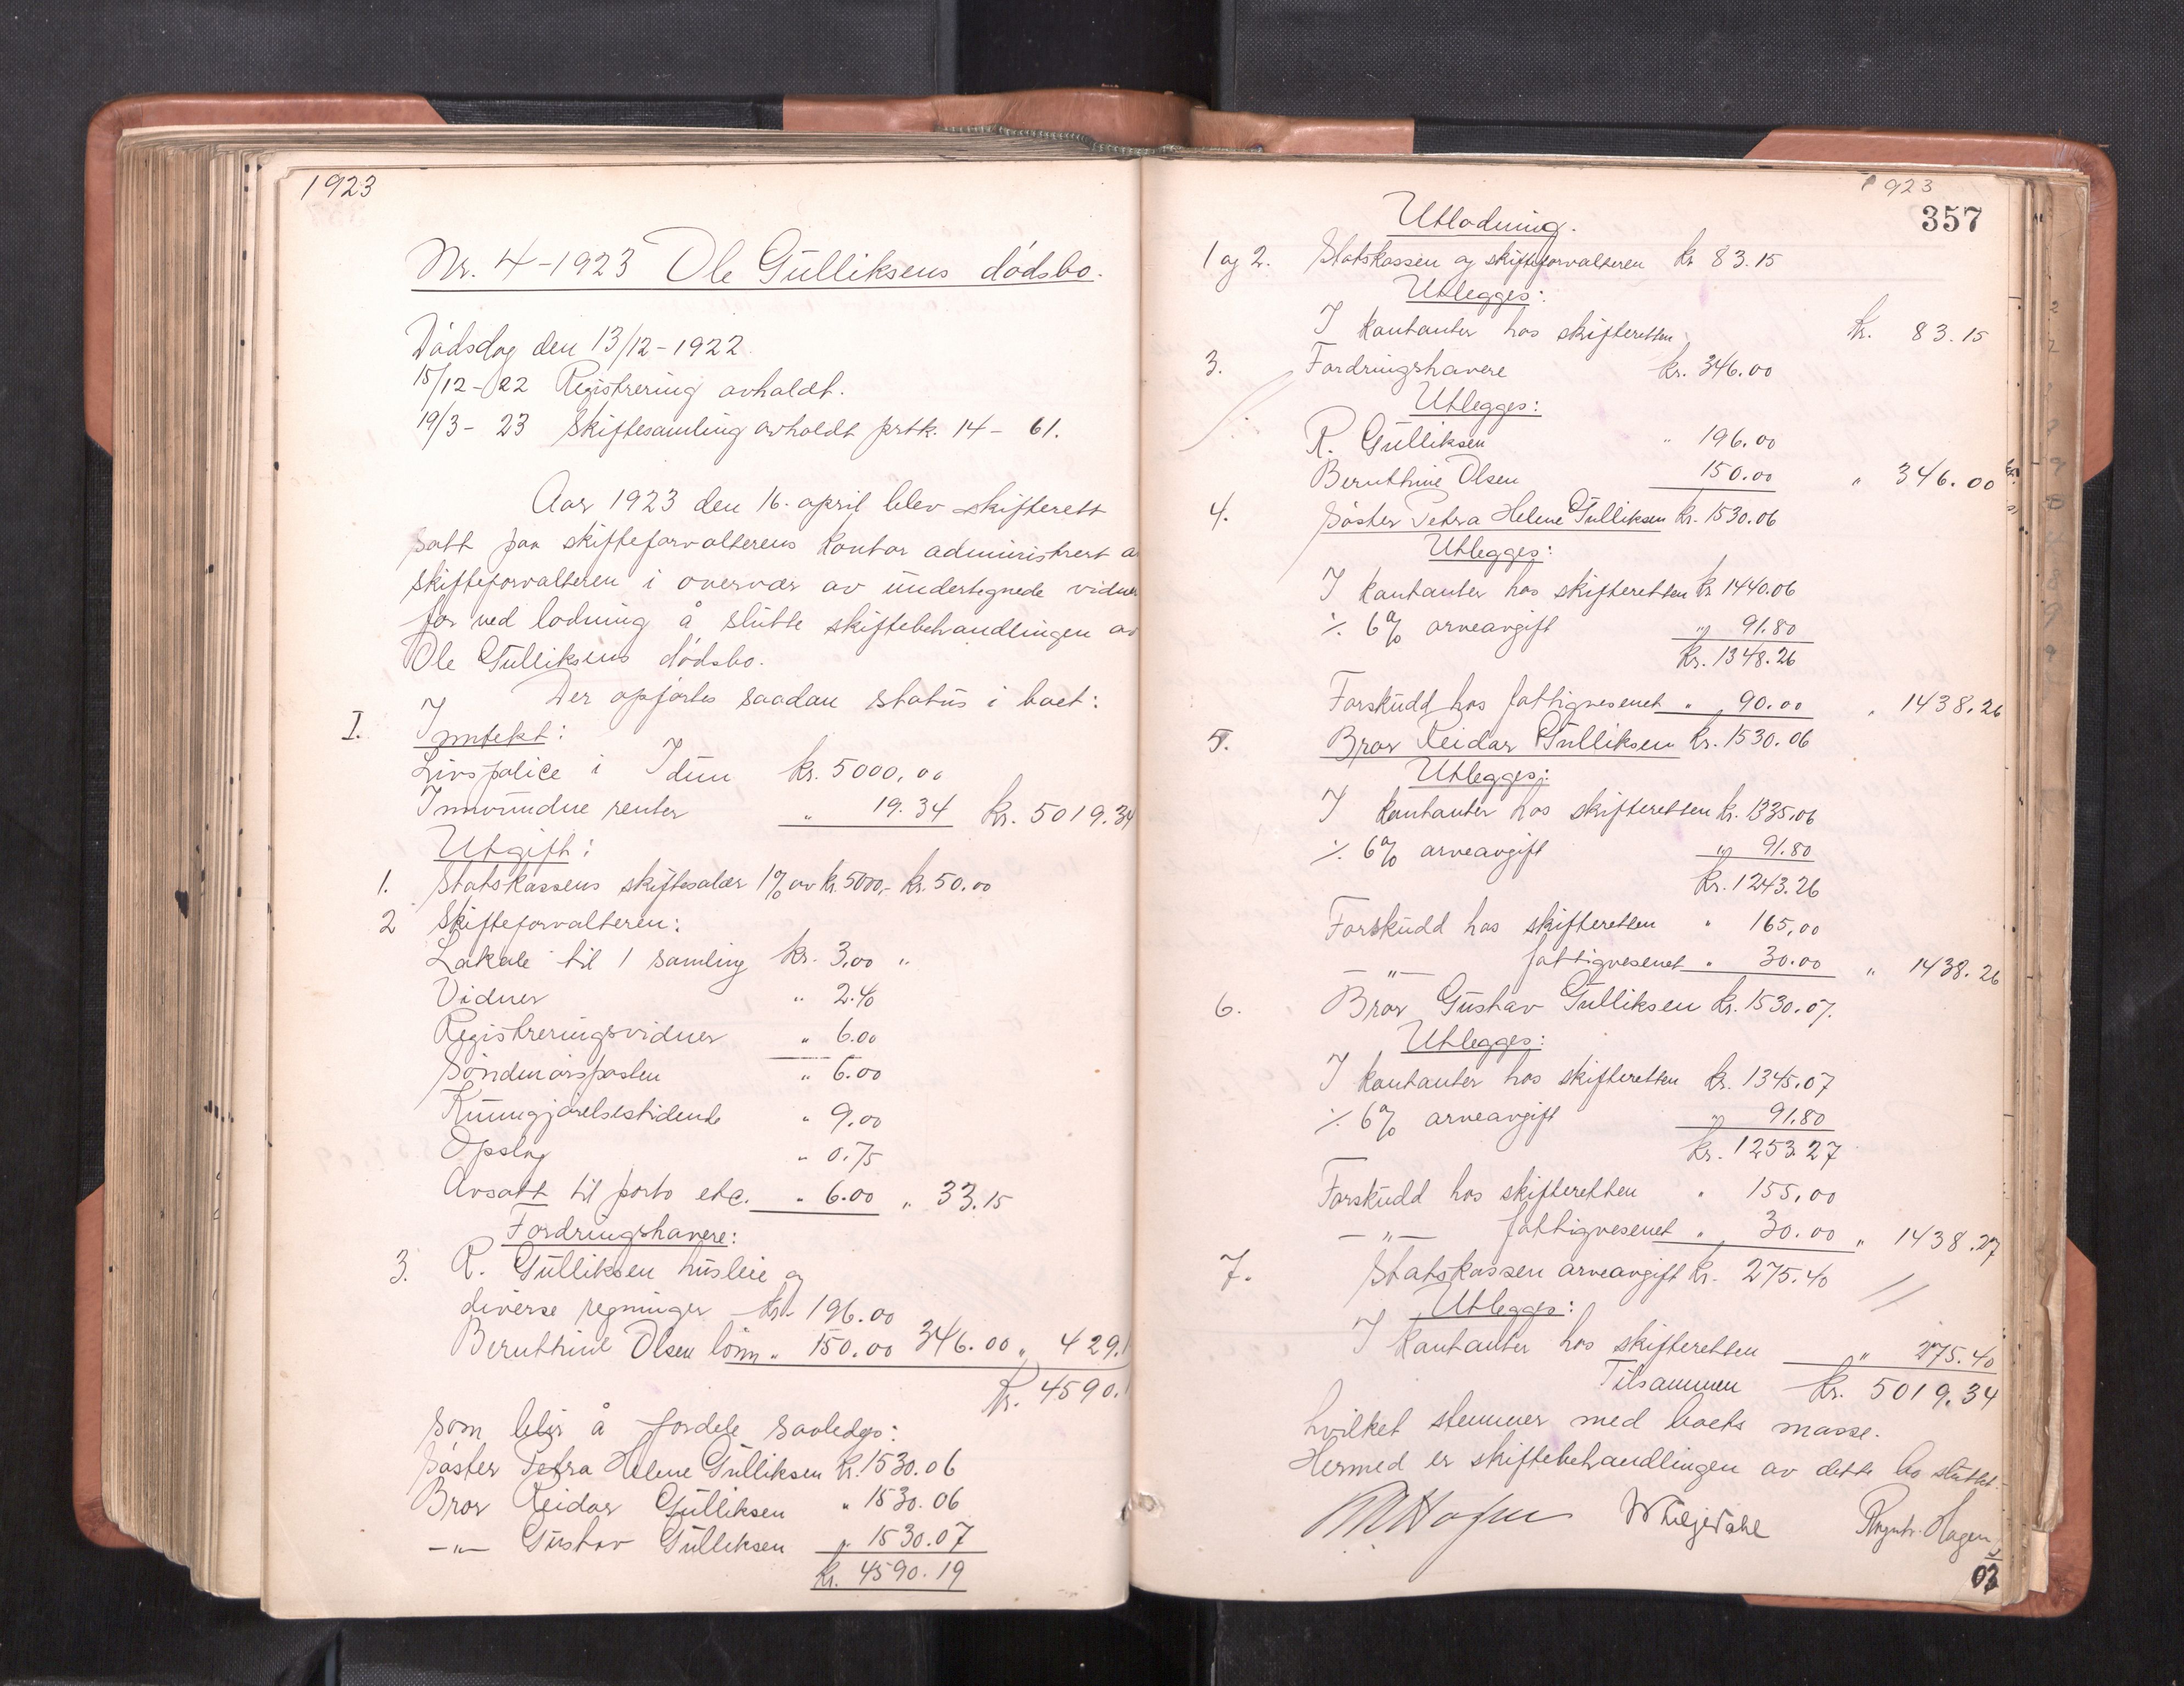 1923
Nr. 4-1923 Ole Gulliksens dødsbo.
Dødsdag den 13/12-1922.
15/12-22 Registrering avholdt.
19/3-23 Skiftesamling avholdt prtk. 14-61.
Aar 1923 den 16. april blev skifterett
satt paa skifteforvalterens kontor administrert a
skifteforvalteren i overvær av undertegnede vidner
for ved lodning å slutte skiftebehandlingen av
Ole Gulliksens dødsbo.
Der opførtes saadan status i boet:
I. Inntekt:
Livspolice i Idun kr. 5000,00
Innvundne renter " 19.34 kr. 5019.34
Utgift:
1. Statskassens skiftesalær 1% av kr. 5000,- kr. 50.00
2 Skifteforvalteren:
Lokale til 1 samling kr. 3,00 "
Vidner " 2.40
Registreringsvidner " 6.00
Søndmørsposten " 6.00
Kunngjørelsestidende " 9.00
Opslag " 0.75
Avsatt til porto etc. " 6.00 " 33.15
Fordringshavere:
3. R. Gulliksen husleie og
diverse regninger kr. 196.00
Bernthine Olsen lønn " 150.00 346.00 " 429.1
Kr. 4590.1
som blir å fordele saaledes:
Søster Petra Helene Gulliksen kr. 1530.06
Bror Reidar Gulliksen " 1530.06
-"- Gustav Gulliksen " 1530.07
Kr. 4590.19
1923
357
Utlodning.
1 og 2. Statskassen og skifteforvalteren kr 83.15
Utlegges:
I kontanter hos skifteretten kr. 83.15
3. Fordringshavere kr. 346.00
Utlegges:
R. Gulliksen " 196.00
Bernthine Olsen 150.00 " 346.00
4. Søster Petra Helene Gulliksen kr. 1530.06
Utlegges:
I kontanter hos skifteretten kr 1440.06
÷ 6% arveavgift " 91.80
Kr. 1348.26
Forskudd hos fattigvesenet " 90.00 " 1438.26
5. Bror Reidar Gulliksen kr. 1530.06
Utlegges:
I kontanter hos skifteretten kr. 1335,06
÷ 6% arveavgift " 91.80
Kr. 1243.26
Forskudd hos skifteretten " 165,00
-"- fattigvesenet " 30.00 " 1438.26
6. Bror Gustav Gulliksen kr. 1530.07.
Utlegges:
I kontanter hos skifteretten kr. 1345.07
÷ 6% arveavgift " 91.80
kr. 1253.27
Forskudd hos skifteretten " 155,00
-"- fattigvesenet " 30.00 " 1438.27
7. Statskassen arveavgift kr. 275.40
Utlegges:
I kontanter hos skifteretten " 275.40
Tilsammen kr. 5019.34
hvilket stemmer med boets masse.
Hermed er skiftebehandlingen av dette bo sluttet.
Hagen